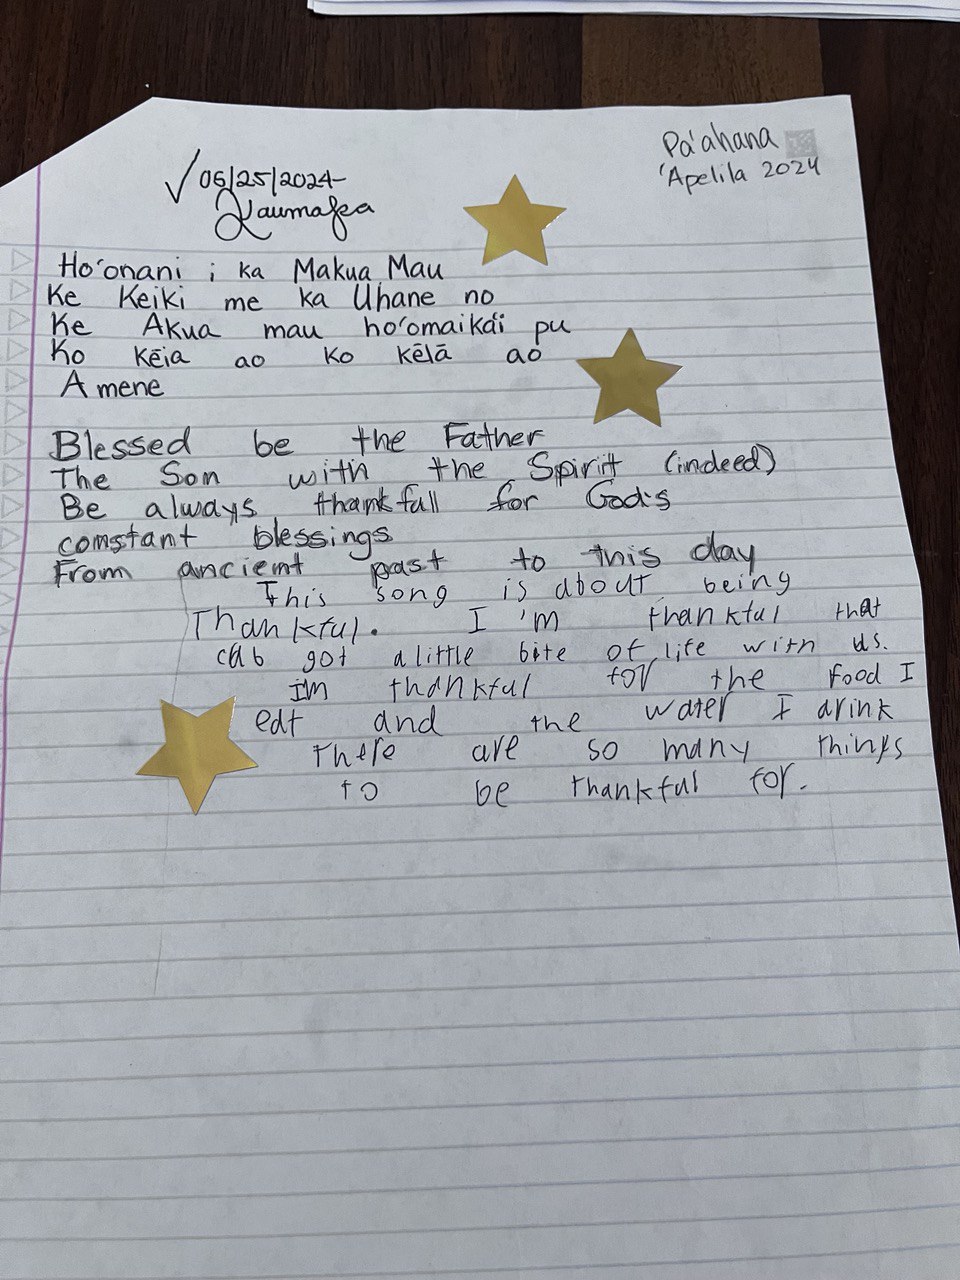 Pa'ahana
'Apelila 2024
✓ 06/25/2024
Ho'onani i ka Makua Mau
Ke Keiki me ka Uhane no
Ke Akua mau ho'omaika'i pu
Ko kēia ao ko kēlā ao
Amene
Blessed be the Father
The Son with the Spirit (indeed)
Be always thankfull for God's
constant blessings
From ancient past to this day
This song is about being
Thankful. I 'm thankful that
cab got a little bite of life with us.
I'm thankful for the food I
eat and the water I drink
There are so many things
to be thankful for.